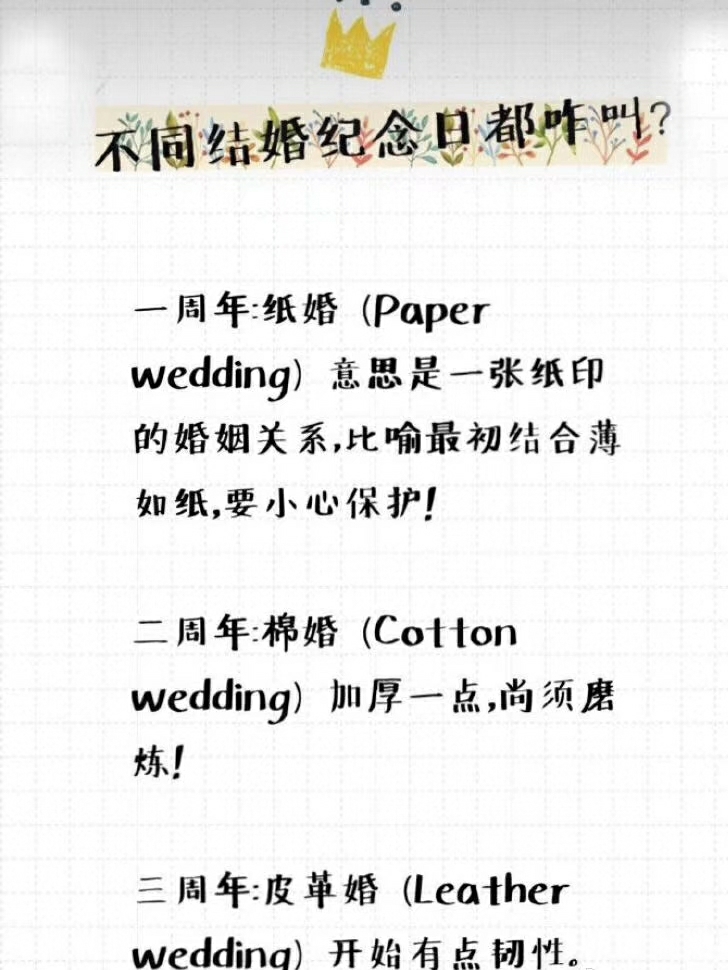 不同结婚纪念日都咋叫?
一周年:纸婚 (Paper
wedding) 意思是一张纸印
的婚姻关系,比喻最初结合薄
如纸,要小心保护!
二周年:棉婚 (Cotton
wedding) 加厚一点,尚须磨
炼!
三周年:皮革婚 (Leather
wedding) 开始有点韧性。